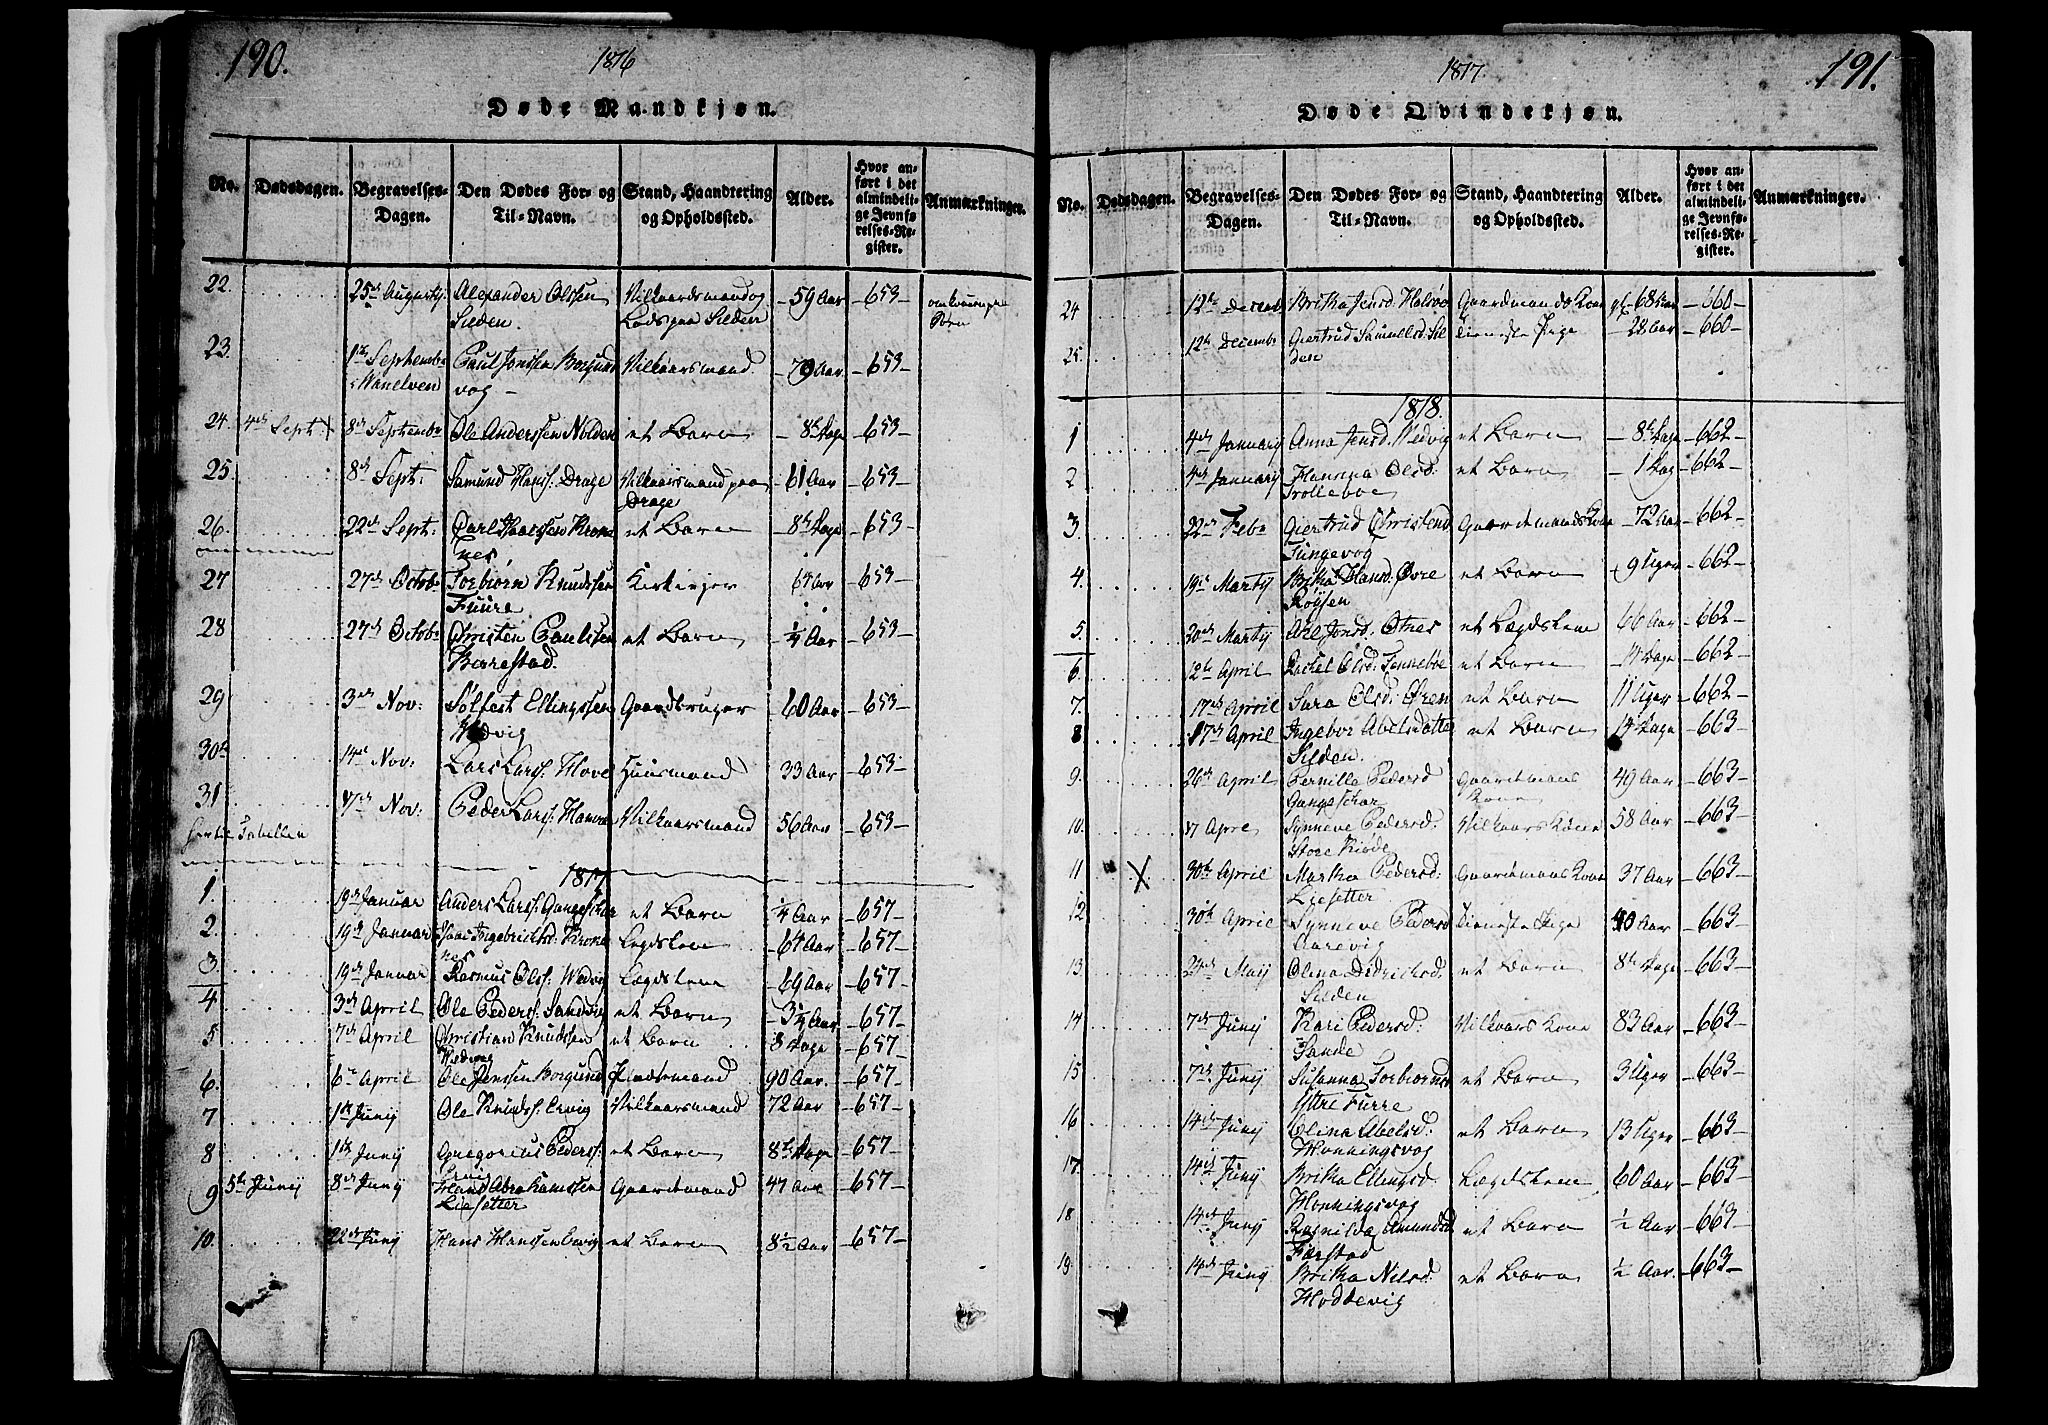 190.
1816
Døde Mandkjøn.
No. Dødsdagen. Begravelses-Dagen. Den Dødes For- og Til-Navn. Stand, Haandtering og Opholdssted. Alder. Hvor anført i det almindelige Jevnførelses-Register. Anmærkninger.
22. 25de Augusty Alexander Olssen Vilkaarsmand og 59 Aar -653-
Silden. Lods paa Silden
23. 1te Septembr Paul Jonssen Borgund Vilkaarsmand 79 Aar -653-
i Wanelven vog -
24. 4de Sept: 8de Septembr Ole Anderssen Nolden et Barn 8te Dage -653-
25 8de Sept: Samund Hans. Drage Vilkaarsmand paa 61 Aar -653-
Drage
26. 22de Sept: Carl Isacssen Krokenes et Barn 8te Dage -653-
27 27de Octobr Torbiørn Knudssen Kirkesjer 64 Aar -653-
Fuure
28 27de Octobr Christen Paulssen et Barn 1/4 Aar -653-
Berrestad.
29 3de Nov: Sølfest Ellingssen Gaardbruger 60 Aar -653-
Wedvig
30te 14de Nov: Lars Larss. Hove Huusmand 33 Aar -653-
31 17de Nov: Peder Larss. Hamre Vilkaarsmand 56 Aar -653-
Tabellen
1817
1. 19de Januar Anders Larss. Gangeskar et Barn 1/4 Aar -657-
2. 19de Januar Isaac Ingebrictss: Krokenes Legdslem -64 Aar -657-
3 19de Januar Rasmus Olss: Wedvig Lægdslem -69 Aar -657-
4 3de April Ole Peders. Sandvig et Barn - 3/4 Aar -657-
5 7de April Christian Knudssen et Barn 8 Dage -657-
Wedvig
6. 6te April Ole Jenssen Borgund 90 Aar. -657-
7 1te Junij Ole Knudss. Ervig Vilkaarsmand 72 Aar -657-
8 1te Junij Gregorius Pederss. et Barn 8te Dage -657-
Ervig
9 5te Junij 8de Junij Hans Abrahamssen Gaardmand 47 Aar -657-
Liesetter
10. 22de Junij Hans Hanssen Ervig et Barn 8 1/2 Aar -657-
191.
1817.
Døde Qvindekjøn.
No. Dødsdagen. Begravelses-Dagen. Den Dødes For- og Til-Navn. Stand, Haandtering og Opholdssted. Alder. Hvor anført i det almindelige Jevnførelses-Register. Anmærkninger.
24 12te Decemb Britha Jensd. Halsør Gaardmands Kone 68 Aar -660-
25. 12te Decembr Giertrud Samuelsd: Silden Tieneste Pige -28 Aar -660-
1818.
1 4de Januarij Anna Jensd. Wedvig et Barn - 8te Dage -662-
2 4de Januarij Hanna Olsd. et Barn - 1 Dag -662-
Trolleboe
3. 22de Febr Giertrud Christend Gaardmands Kone -72 Aar -662-
Tungevog
4. 19de Martij Britha Hansd. Øvre et Barn - 9 Uger -662-
Røysen
5. 30de Martij Axl Jonsd. Otnes et Lægdslem 66 Aar -662-
6. 12te April Rachel Olsd. Tennebøe et Barn -14 Dage -662-
7. 17de April Sara Olsd: Øren et Barn 11 Uger -662-
8 17de April Ingebor Abelsdatter et Barn 14 Dage -663-
Silden.
9. 26de April Pernilla Pedersd Gaardmans 49 Aar -663-
Gangeskar Kone
10. Apre Synneve Pedersd. Vilkaars Kone 58 Aar -663-
Store Riøde
11 X 30te April Martha Pedersd: Gaardmans Kone 37 Aar -663-
Liesetter
12 30te April Synneve Pedersd Tieneste Pige 40 Aar -663-
Aarevig
13. 24de Maij Olina Didrichsd. et Barn 8te Dage -663-
Silden
14 7de Junij Kari Pedersd: Vilkaars Kone 83 Aar -663-
Sande
15 7de Junij Susanna Torbiørnsd et Barn 3 Uger -663-
Yttre Furre
16 14de Junij Olina Abelsd: et Barn 13 Uger -663-
Honningsvog
17. 14de Junij Britha Ellingsd. Lægdslem 60 Aar -663-
Honningsvog
18 14de Junij Ragnilda Amundsd et Barn 1/2 Aar -663-
Farstad
19. 14de Junij Britha Nilsd. et Barn 1/2 Aar. -663-
Hoddevig